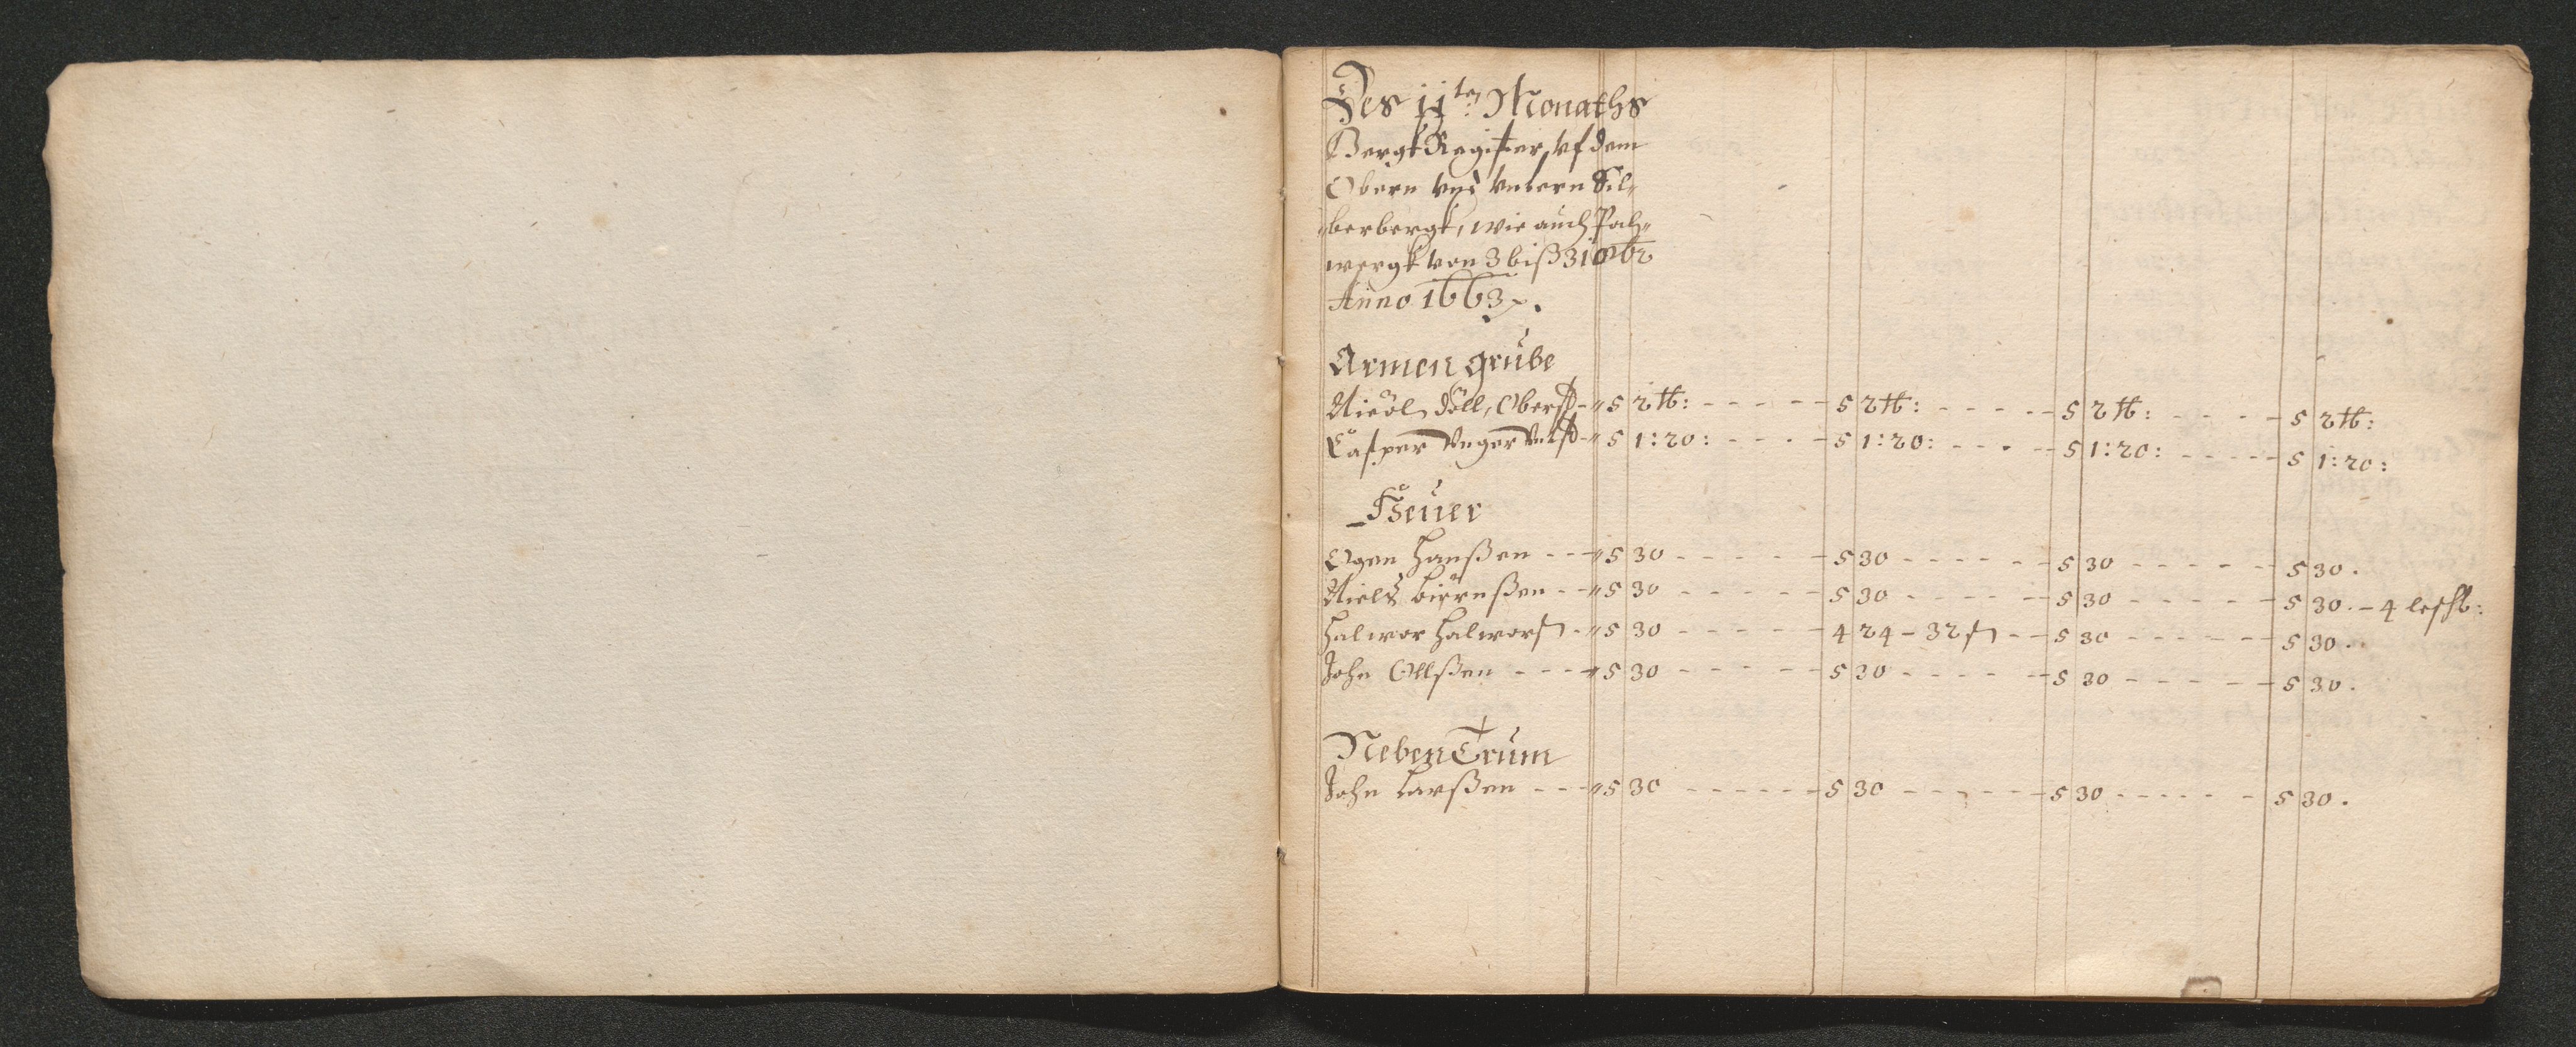 Des 11ten Monaths
Bergk Register, vf dem
Obern vnd vntern Sil-
berbergk, wie auch Poch-
wergk von 3 biß 31 8br
Anno 1663.
Armen grube
Nicol Döll, Oberst - 5 2 tb: - - - - 5 2 tb: - - - - 5 2 tb: - - - - 5 2 tb:
Casper Unger Vntst - 5 1:20: - - - - 5 1:20: - - - - 5 1:20: - - - - 5 1:20:
Feüer
Ogen Hanßen - - - 5 30 - - - - 5 30 - - - - 5 30 - - - - 5 30.
Niels biörnßen - - 5 30 - - - - 5 30 - - - - 5 30 - - - - 5 30. - 4
Halwor Halworß - 5 30 - - - - 4 24 - 32 ß - - 5 30 - - - - 5 30.
John Ollßen - - - - 5 30 - - - - 5 30 - - - - 5 30 - - - - 5 30.
Neben Trum
John Larßen - - - 5 30 - - - - 5 30 - - - - 5 30 - - - - 5 30.